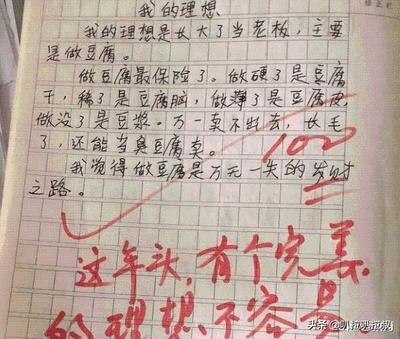 我的理想
我的理想是长大了当老板，主要
是做豆腐。
做豆腐最保险了。做硬了是豆腐
干，稀了是豆腐脑，做薄了是豆腐皮，
做没了是豆浆。万一卖不出去，长毛
了，还能当臭豆腐卖。
100
我觉得做豆腐是万无一失的发财
之路。
这年头，有个完美
的理想不容易
头条@叭拉叭拉叔